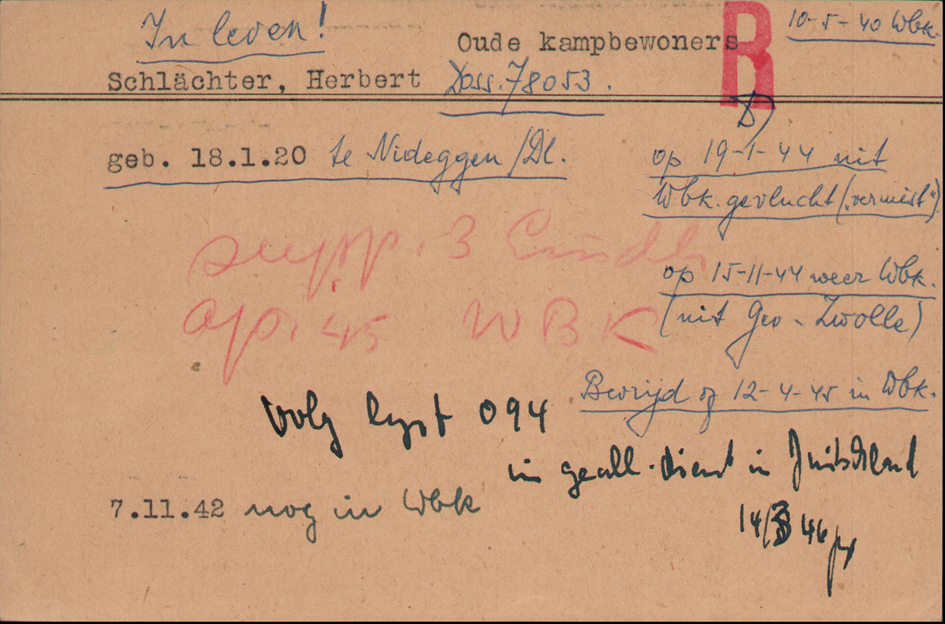 In leven!
Oude kampbewoners
R
10-5-40 Wbk.
Schlächter, Herbert Doss. 78053.
geb. 18.1.20 te Nideggen/Dl.
op 19-1-44 uit
Wbk. gevlucht („vermist")
supp. 3
op 15-11-44 weer Wbk.
(uit Gev. Zwolle)
apr. 45 WBK
Bevrijd op 12-4-45 in Wbk.
Volg lijst 094
in geall. dienst in Duitschland
7.11.42 nog in Wbk